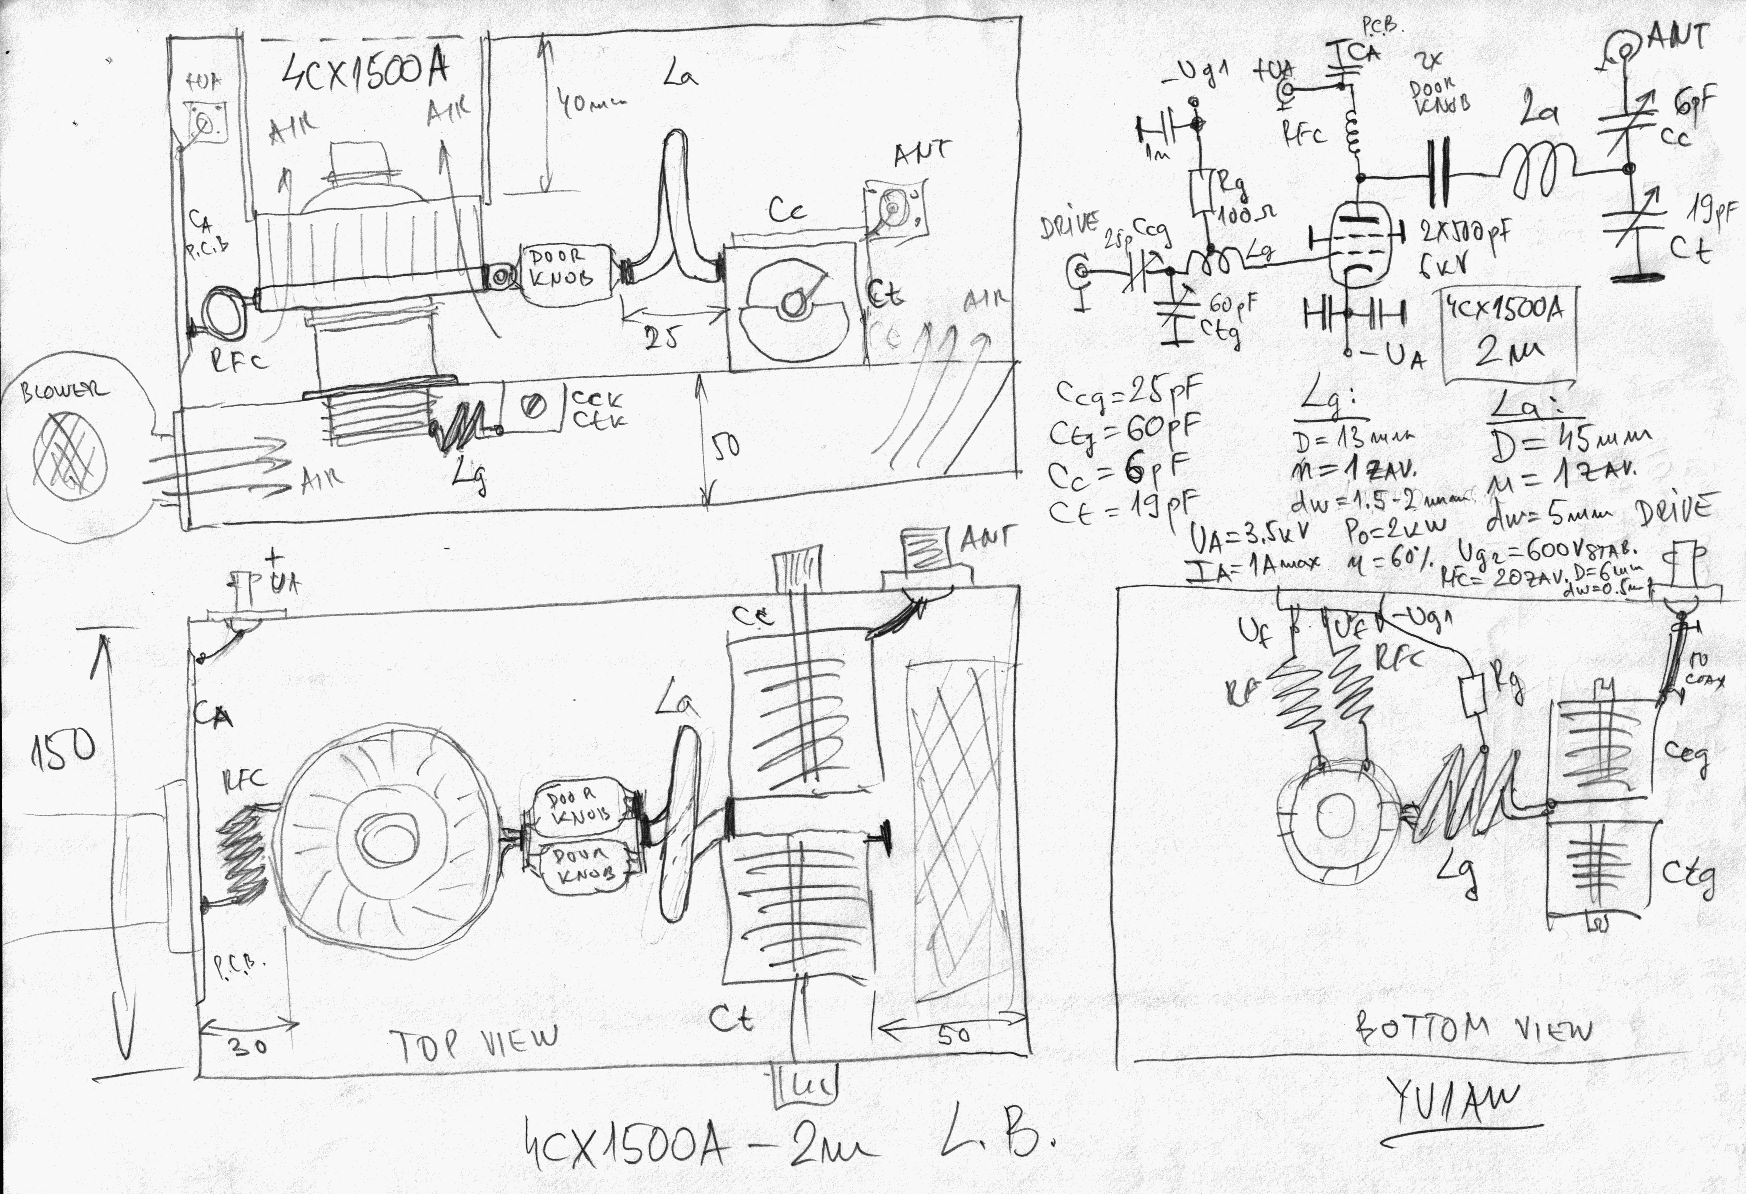 +UA
4CX1500A
AIR
AIR
40mm
La
ANT
CA
P.C.B
DOOR
KNOB
Cc
Ct
AIR
RFC
25
BLOWER
CCK
CTK
Lg
AIR
50
P.C.B.
CA
-Ug1
+UA
RFC
2X
DOOR
KNOB
La
ANT
6pF
Cc
1n
Rg
100Ω
DRIVE
25p Ccg
Lg
60pF
Ctg
2X500pF
6KV
19pF
Ct
-UA
4CX1500A
2m
Ccg=25pF
Ctg=60pF
Cc=6pF
Ct=19pF
Lg:
D=13mm
n=1ZAV.
dw=1.5-2mm
La:
D=45mm
n=1ZAV.
dw=5mm
DRIVE
UA=3.5kV
Po=2kW
Ug2=600VSTAB.
IA=1Amax
η=60%.
RFC=20ZAV. D=6mm
dw=0.5m
+
UA
ANT
Cc
CA
La
150
RFC
DOOR
KNOB
DOOR
KNOB
P.C.B.
Ct
30
TOP VIEW
50
Uf
Uf
-Ug1
RFC
RF
Rg
COAX
Ccg
Lg
Ctg
BOTTOM VIEW
YU1AW
4CX1500A-2m L.B.